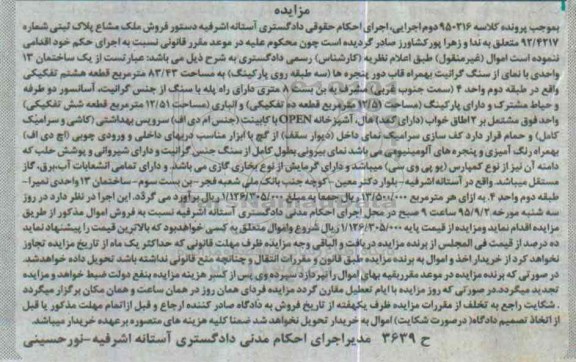 مزایده
بموجب پرونده کلاسه ۹۵۰۲۱۶ دوم اجرایی، اجرای احکام حقوقی دادگستری آستانه اشرفیه دستور فروش ملک مشاع پلاک ثبتی شماره
۹۲/۴۲۱۷ متعلق به ندا و زهرا پورکشاورز صادر گردیده است چون محکوم علیه در موعد مقرر قانونی نسبت به اجرای حکم خود اقدامی
ننموده است اموال (غیرمنقول) طبق اعلام نظریه (کارشناس) رسمی دادگستری به شرح ذیل می باشد: عبارتست از یک ساختمان ۱۳
واحدی با نمای از سنگ گرانیت بهمراه قاب دور پنجره ها (سه طبقه روی پارکینگ) به مساحت ۸۳/۴۳ مترمربع قطعه هشتم تفکیکی
واقع در طبقه دوم واحد ۴ (سمت جنوب غربی) مشرف به بن بست ۸ متری دارای راه پله با سنگ از جنس گرانیت، آسانسور دو طرفه و
حیاط مشترک و دارای پارکینگ (مساحت ۱۲/۵۱ مترمربع قطعه ده تفکیکی) و انباری (مساحت ۱۲/۵۱ مترمربع قطعه شش تفکیکی)
واحد فوق مشتمل بر ۲ اطاق خواب (دارای کمد) هال، آشپزخانه OPEN با کابینت (جنس ام دی اف) سرویس بهداشتی (کاشی و سرامیک
کامل) و حمام قرار دارد کف سازی سرامیک نمای داخل (دیوار سقف) از گچ با ابزار مناسب دربهای داخلی و ورودی چوبی (اچ دی اف)
بهمراه رنگ آمیزی و پنجره های آلومینیومی می باشد نمای بیرونی بطول کامل از سنگ جنس گرانیت و دارای شیروانی و پوشش حلب که
دامنه آن نیز از نوع کمپارس (یو پی وی سی) میباشد و دارای گرمایش از نوع بخاری گازی می باشد و دارای تمامی انشعابات آب، برق، گاز
مستقل میباشد. واقع در آستانه اشرفیه- بلوار دکتر معین -کوچه جنب بانک ملی شعبه فجر-بن بست سوم- ساختمان ۱۳ واحدی نمیرا-
طبقه دوم واحد ۴. به ازای هر مترمربع ۱۳/۵۰۰/۰۰۰ ریال جمعا به مبلغ ۱/۱۲۶/۳۰۵/۰۰۰ ریال برآورد می گردد. این اجرا در نظر دارد در روز
سه شنبه مورخه ۹۵/۹/۲ ساعت ۹ صبح در محل اجرای احکام مدنی دادگستری آستانه اشرفیه نسبت به فروش اموال مذکور از طریق
مزایده اقدام نماید ومزایده از قیمت پایه ۱/۱۲۶/۳۰۵/۰۰۰ ریال شروع واموال متعلق به کسی خواهد بود که بالاترین قیمت را پیشنهاد نماید
ده درصد از قیمت فی المجلس از برنده مزایده دریافت و الباقی وجه مزایده ظرف مهلت قانونی که حداکثر یک ماه از تاریخ مزایده تجاوز
نخواهد کرد از خریدار اخذ و اموال به برنده مزایده طبق قانون و مقررات انتقال و چنانچه منع قانونی نداشته باشد تحویل داده خواهد شد.
در صورتی که برنده مزایده در موعد مقرر بقیه بهای اموال را نپردازد سپرده وی پس از کسر هزینه مزایده بنفع دولت ضبط خواهد و مزایده
تجدید میگردد. در صورتی که روز مزایده با ایام تعطیل مقارن گردد مزایده فردای همان روز در همان ساعت و همان مکان برگزار میگردد
. شکایت راجع به تخلف از مقررات مزایده ظرف یکهفته از تاریخ فروش به دادگاه صادر کننده ارجاع و قبل از اتمام مهلت مذکور یا قبل
از اتخاذ تصمیم دادگاه (در صورت شکایت) اموال به خریدار تحویل نخواهد شد ضمنا کلیه هزینه های متصوره بر عهده خریدار میباشد.
ح ۳۶۳۹ مدیر اجرای احکام مدنی دادگستری آستانه اشرفیه-نورحسینی